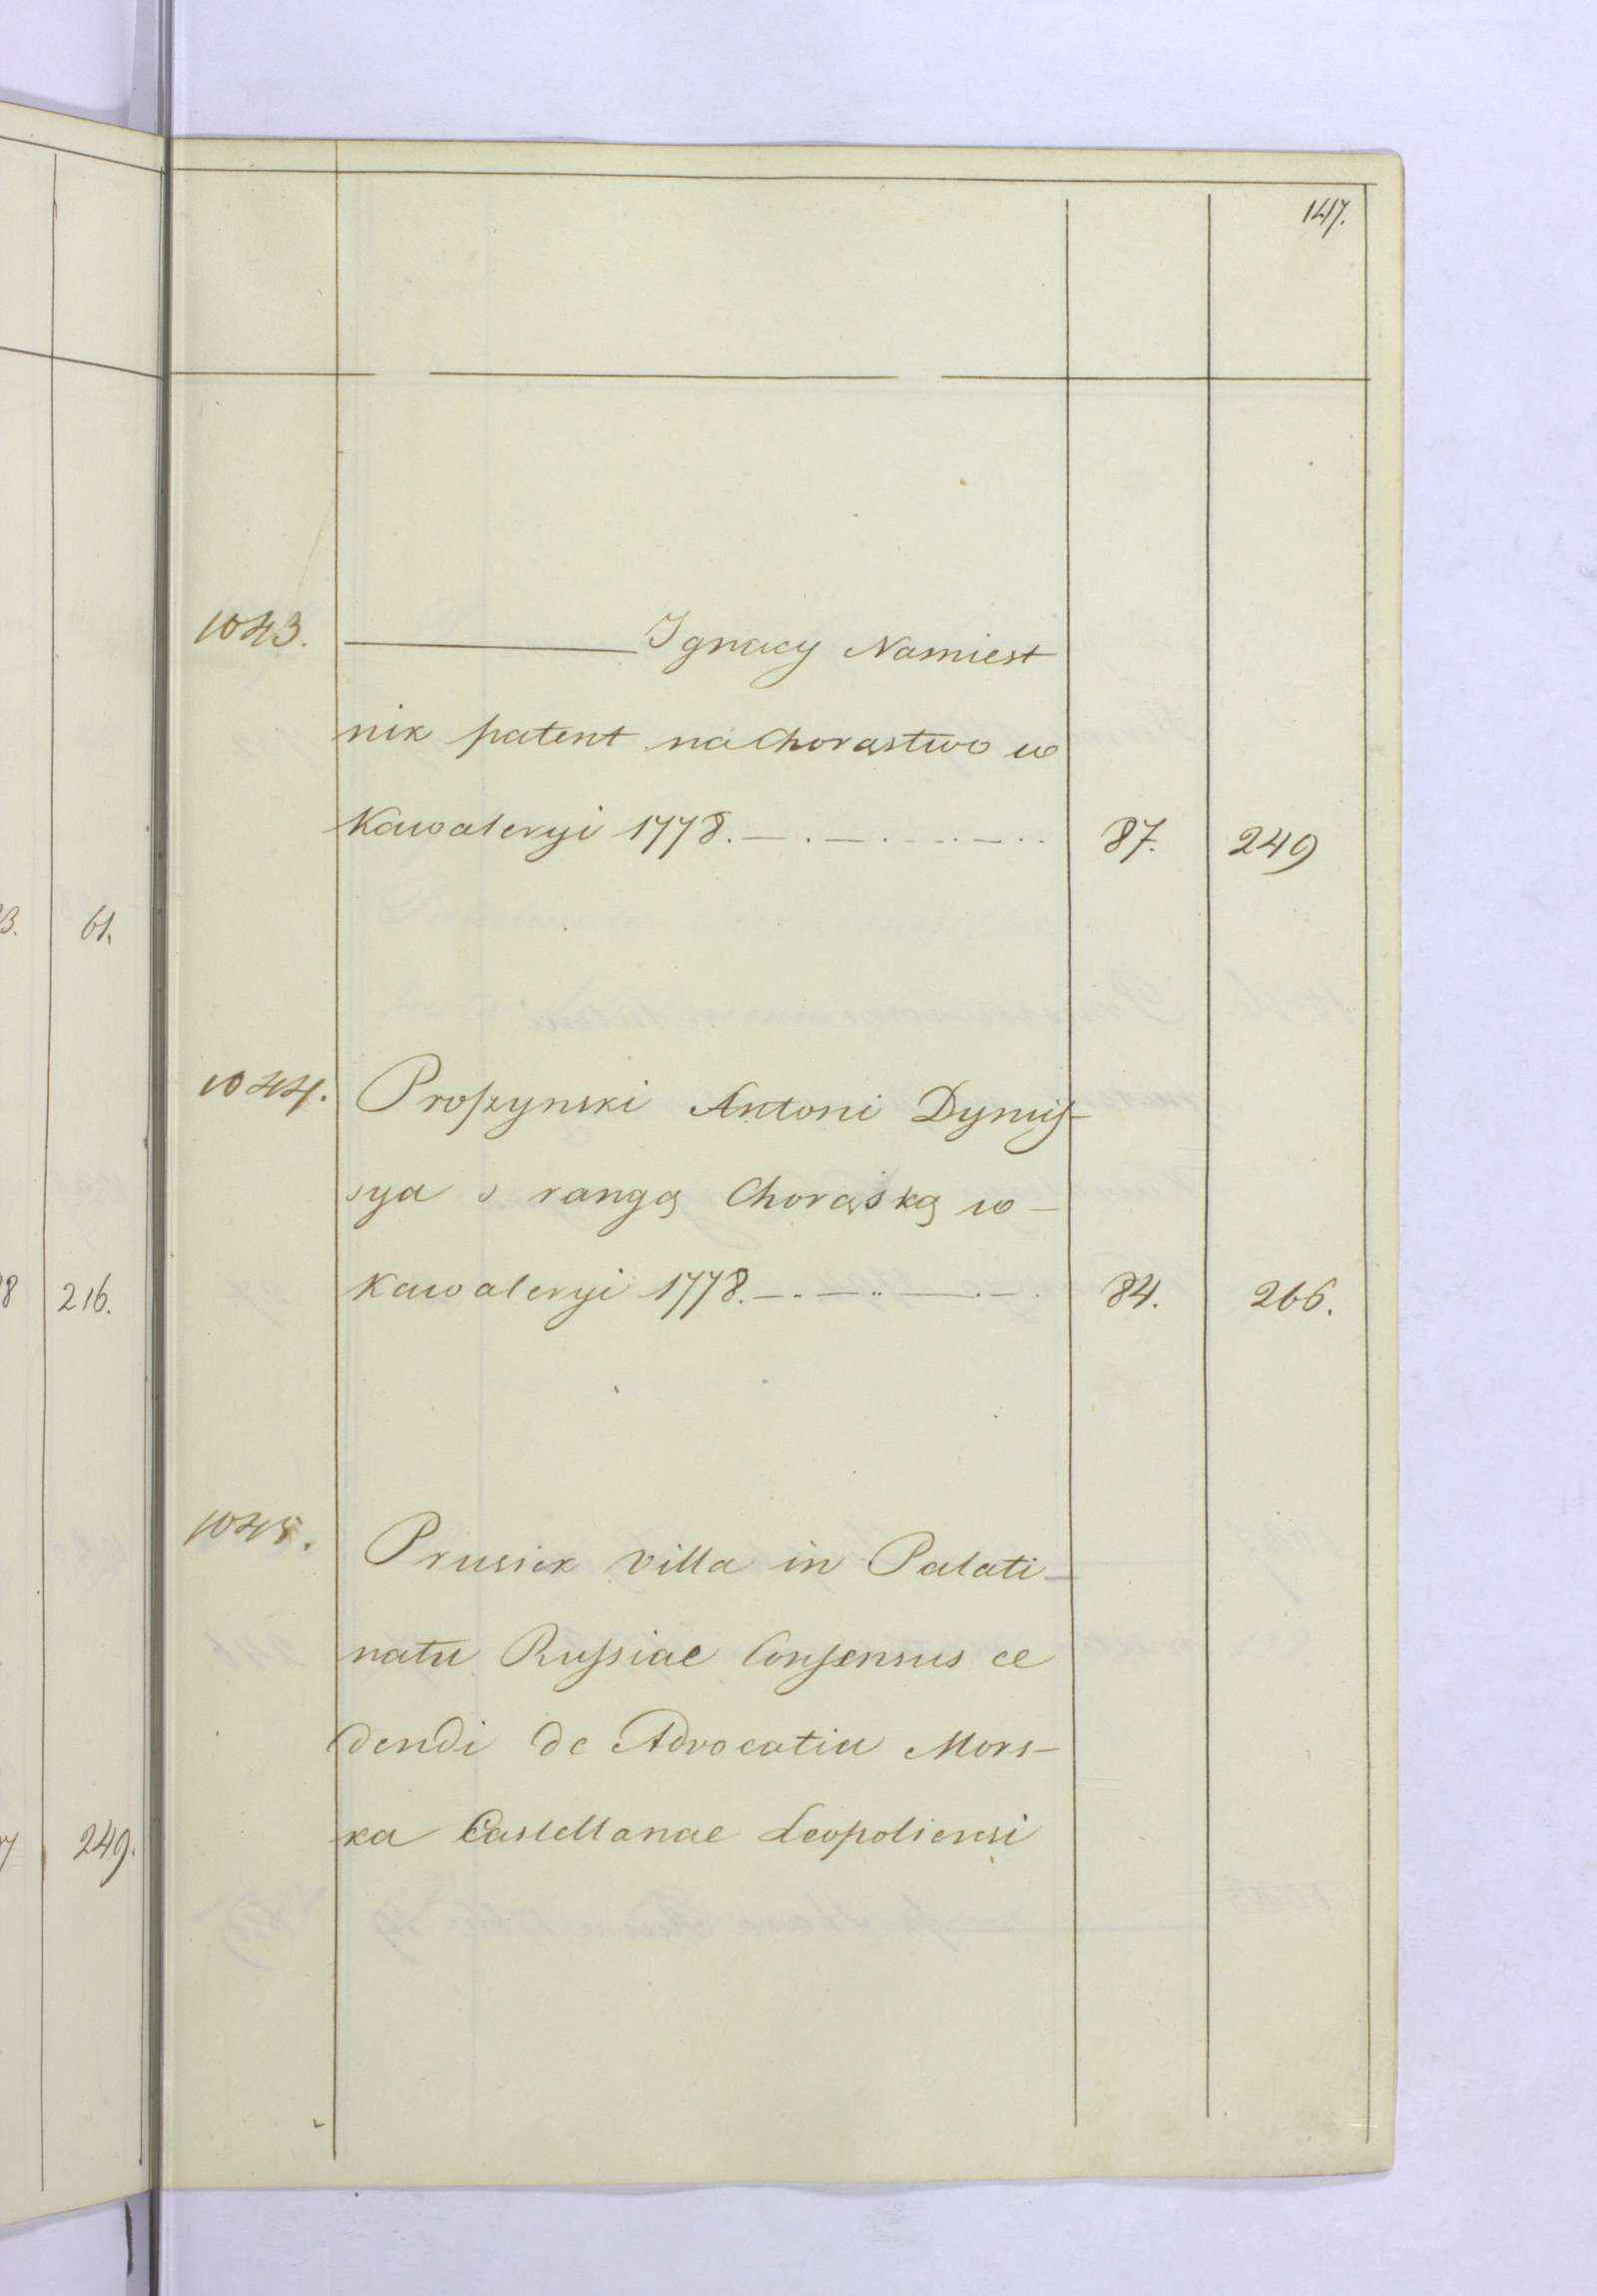 147.
1043. ——— Ignacy Namiest
nik patent na Chorąstwo w
Kawaleryi 1778. 87. 249
61.
1044. Proszynski Antoni Dymis-
sya s rangą Chorąską w
Kawaleryi 1778. 84. 266.
216.
1045. Prusiek villa in Palati-
natu Russiae Consensus ce
dendi de Advocatia Mors-
ka Castellanae Leopoliensi
249.